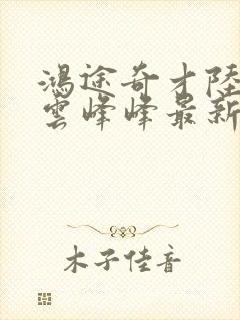 鴻途奇才陸
雲峰峰最新
木子佳音